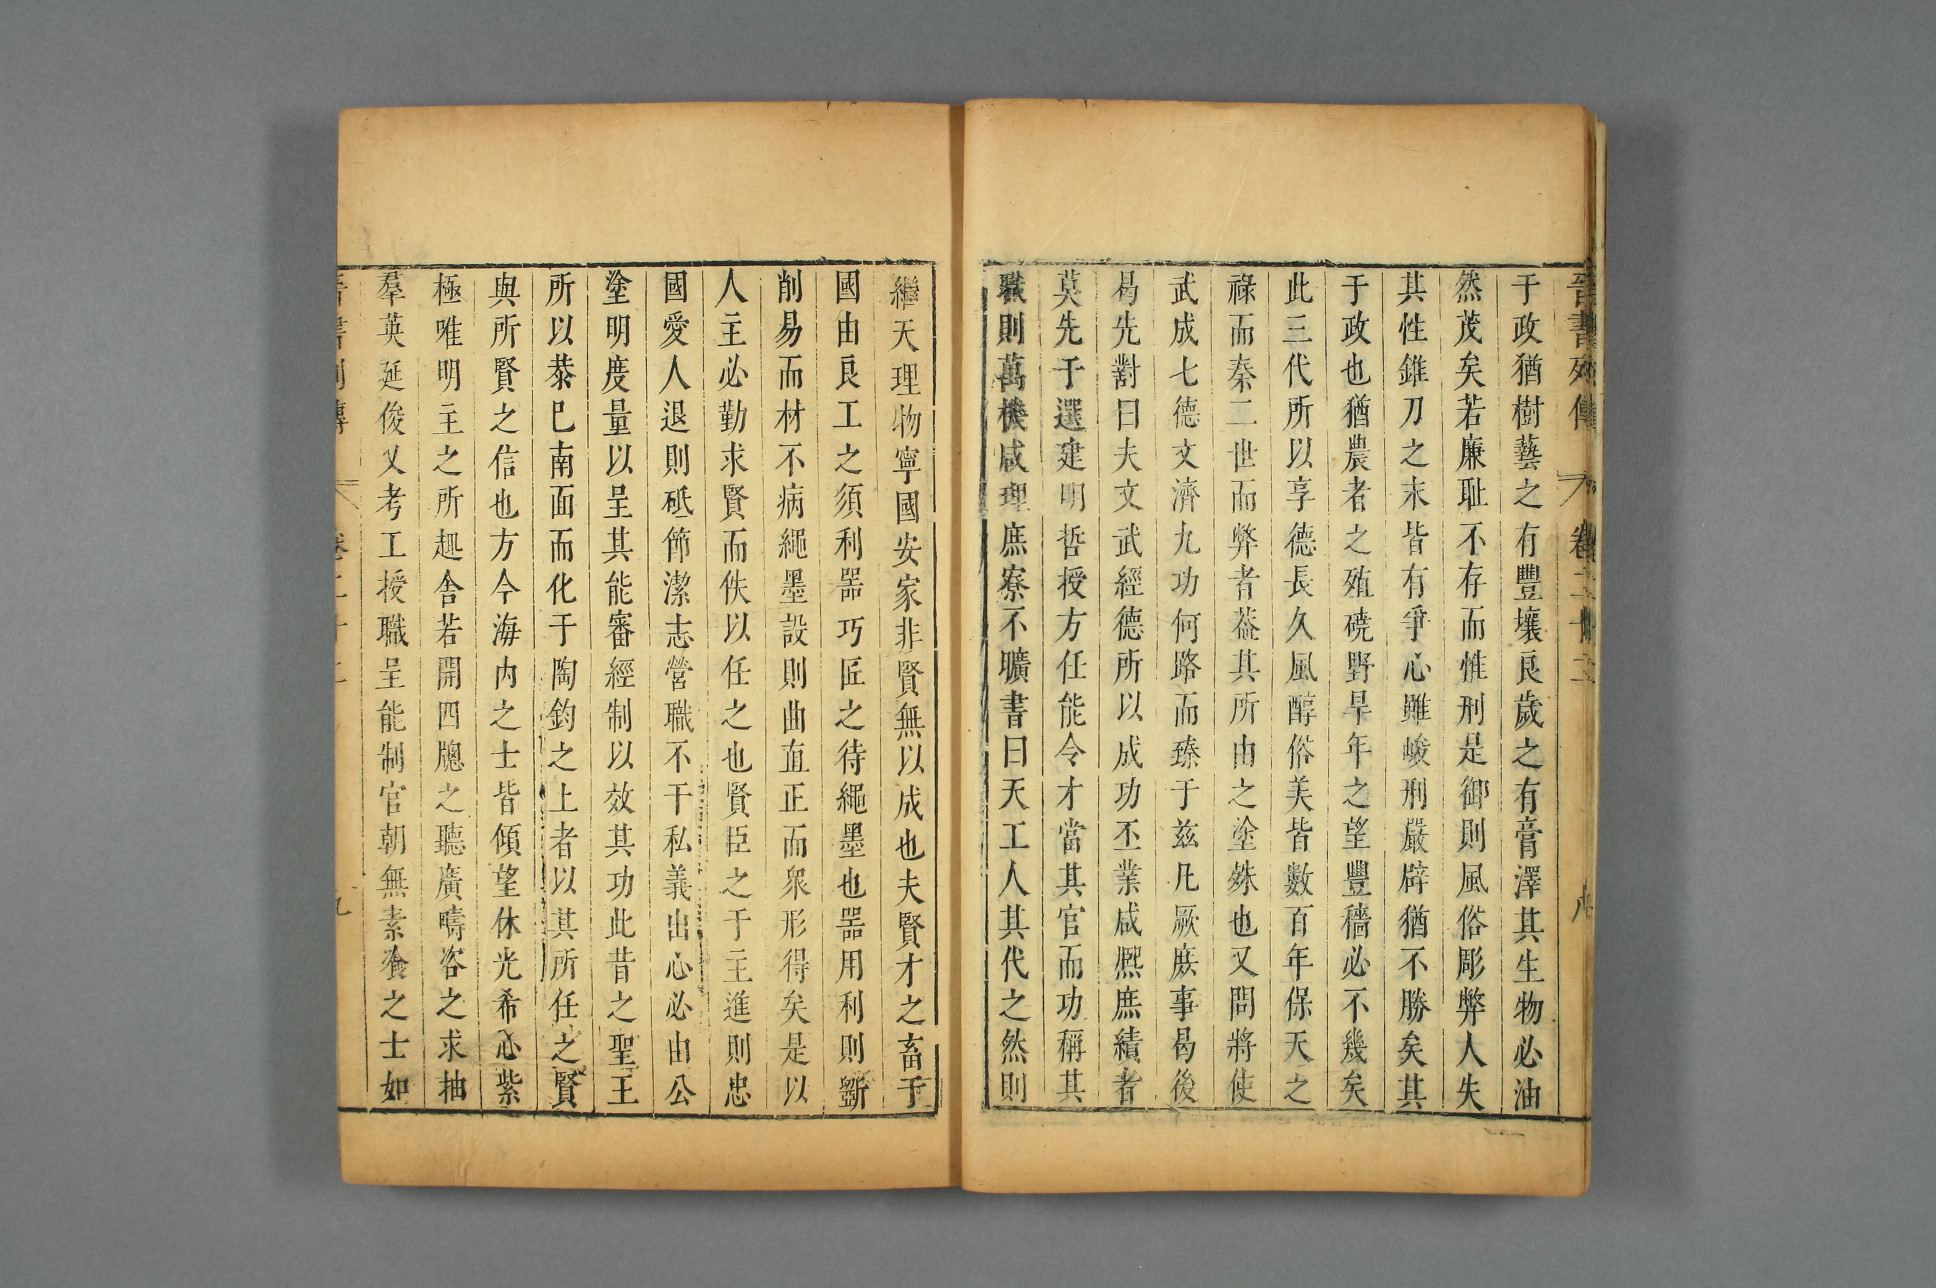 晉書列傳 卷二十二 八
于政猶樹藝之有豐壤良歲之有膏澤其生物必油
然茂矣若廉耻不存而惟刑是御則風俗彫弊人失
其性錐刀之末皆有爭心雖峻刑嚴辟猶不勝矣其
于政也猶農者之殖磽野旱年之望豐穡必不幾矣
此三代所以享德長久風醇俗美皆數百年保天之
祿而秦二世而弊者葢其所由之塗殊也又問將使
武成七德文濟九功何路而臻于兹凡厥庶事曷後
曷先對曰夫文武經德所以成功丕業咸熈庶績者
莫先于選建明哲授方任能令才當其官而功稱其
職則萬機咸理庶寮不曠書曰天工人其代之然則
繼天理物寧國安家非賢無以成也夫賢才之畜于
國由良工之須利噐巧匠之待繩墨也噐用利則斵
削易而材不病繩墨設則曲直正而衆形得矣是以
人主必勤求賢而佚以任之也賢臣之于主進則忠
國愛人退則砥節潔志營職不干私義出心必由公
塗明度量以呈其能審經制以效其功此昔之聖王
所以恭巳南面而化于陶鈞之上者以其所任之賢
與所賢之信也方今海内之士皆傾望休光希心紫
極唯明主之所趣舍若開四牕之聽廣疇咨之求抽
羣英延俊乂考工授職呈能制官朝無素飡之士如
晉書列傳 卷二十二 九